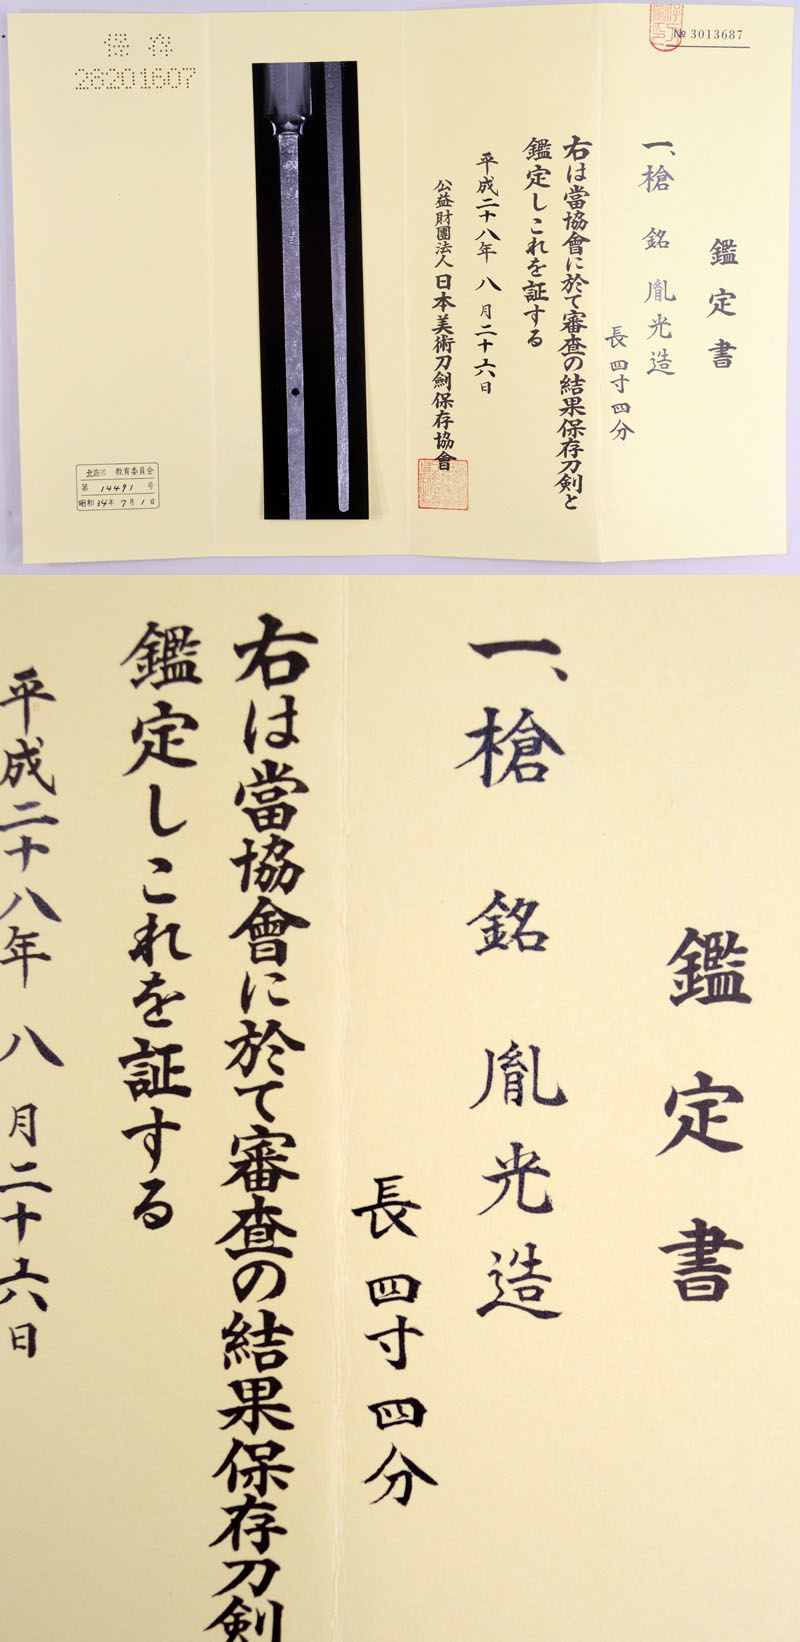 № 3013687
鑑定書
一、槍 銘 胤光造
長 四寸四分
右は當協會に於て審査の結果保存刀剣と
鑑定しこれを証する
平成二十八年 八 月二十六日
公益財團法人 日本美術刀劍保存協會
保存
28201607
北海道 教育委員会
第 14491 号
昭和 34年 7月 1日
鑑定書
一、槍 銘 胤光造
長 四寸四分
右は當協會に於て審査の結果保存刀剣
鑑定しこれを証する
平成二十八年 八 月二十六日